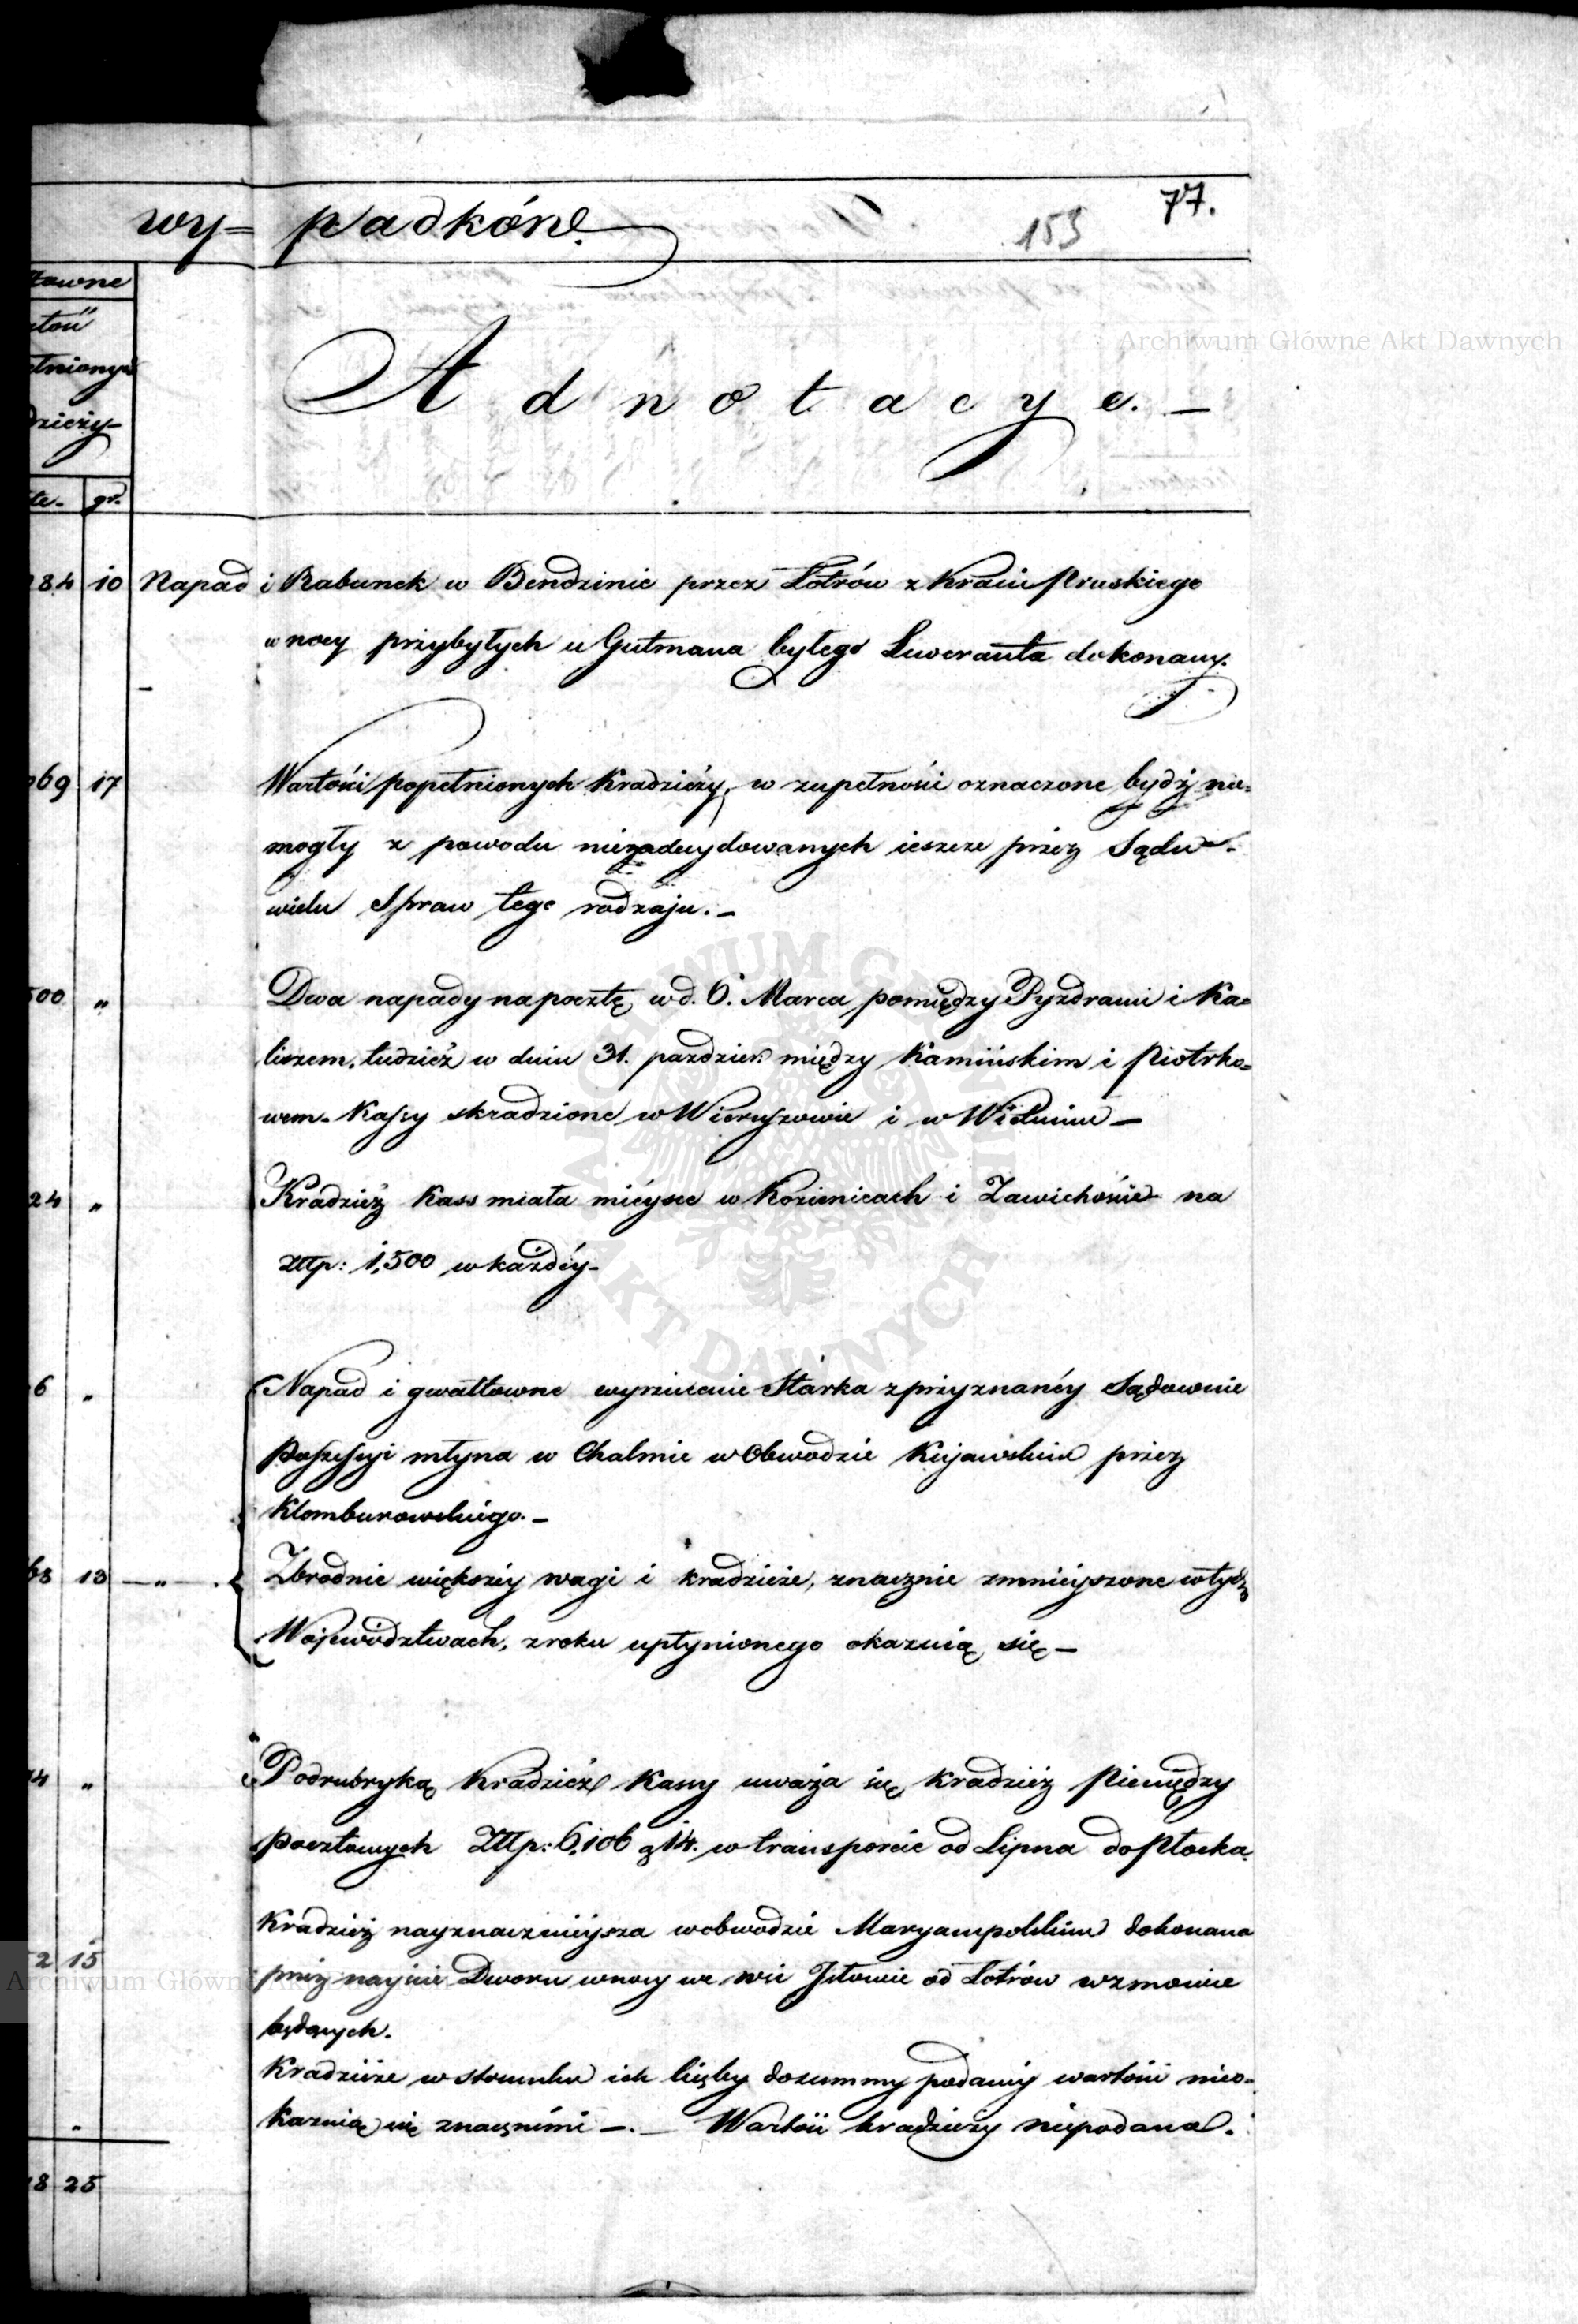 wy= padków.
153
77.
Adnotacye. —
gr.
10 Napad i Rabunek w Bendzinie przez Łotrów z Kraiu Pruskiego
w nocy przybyłych u Gutmana byłego Liweranta dokonany.
69 17 Wartości popełnionych Kradzieży, w zupełności oznaczone bydź nie=
mogły z powodu niezadecydowanych ieszcze przez Sądu
wielu Spraw tego rodzaju. —
500 " Dwa napady na pocztę, w d. 6. Marca pomiędzy Pyzdrami i Ka=
liszem, tudzież w dniu 31. paździer: między Kamińskim i Piotrko=
wem. Kassy skradzione w Wieruszowie i w Wieluniu —
24 " Kradzież Kass miała mieysce w Kozienicach i Zawichoście na
złtp: 1,500 w każdéy —
6 " Napad i gwałtowne wyrzucenie Starka z przyznanéy Sądownie
Possessyi młyna w Chalmie w Obwodzie Kujawskim przez
Klomburowskiego. —
13 — " — Zbrodnie większey wagi i kradzieże, znacznie zmnieyszone w tych
Województwach, z roku upłynionego okazuią się —
" Pod rubryką Kradzież Kassy uważa się kradzież Pieniędzy
Pocztowych Złtp: 6,106 g 14. w transporcie od Lipna do Płocka.
Kradzież nayznacznieysza w obwodzie Maryampolskim dokonana
15 przez nayście Dworu w nocy we wsi od Łotrów w zmowie
będących.
Kradzieże w stosunku ich liczby do summy podaney wartości nieo=
kazuią się znacznemi —. — Wartość kradzieży niepodana.
8 25
Archiwum Główne Akt Dawnych
ARCHIWUM GŁÓWNE AKT DAWNYCH